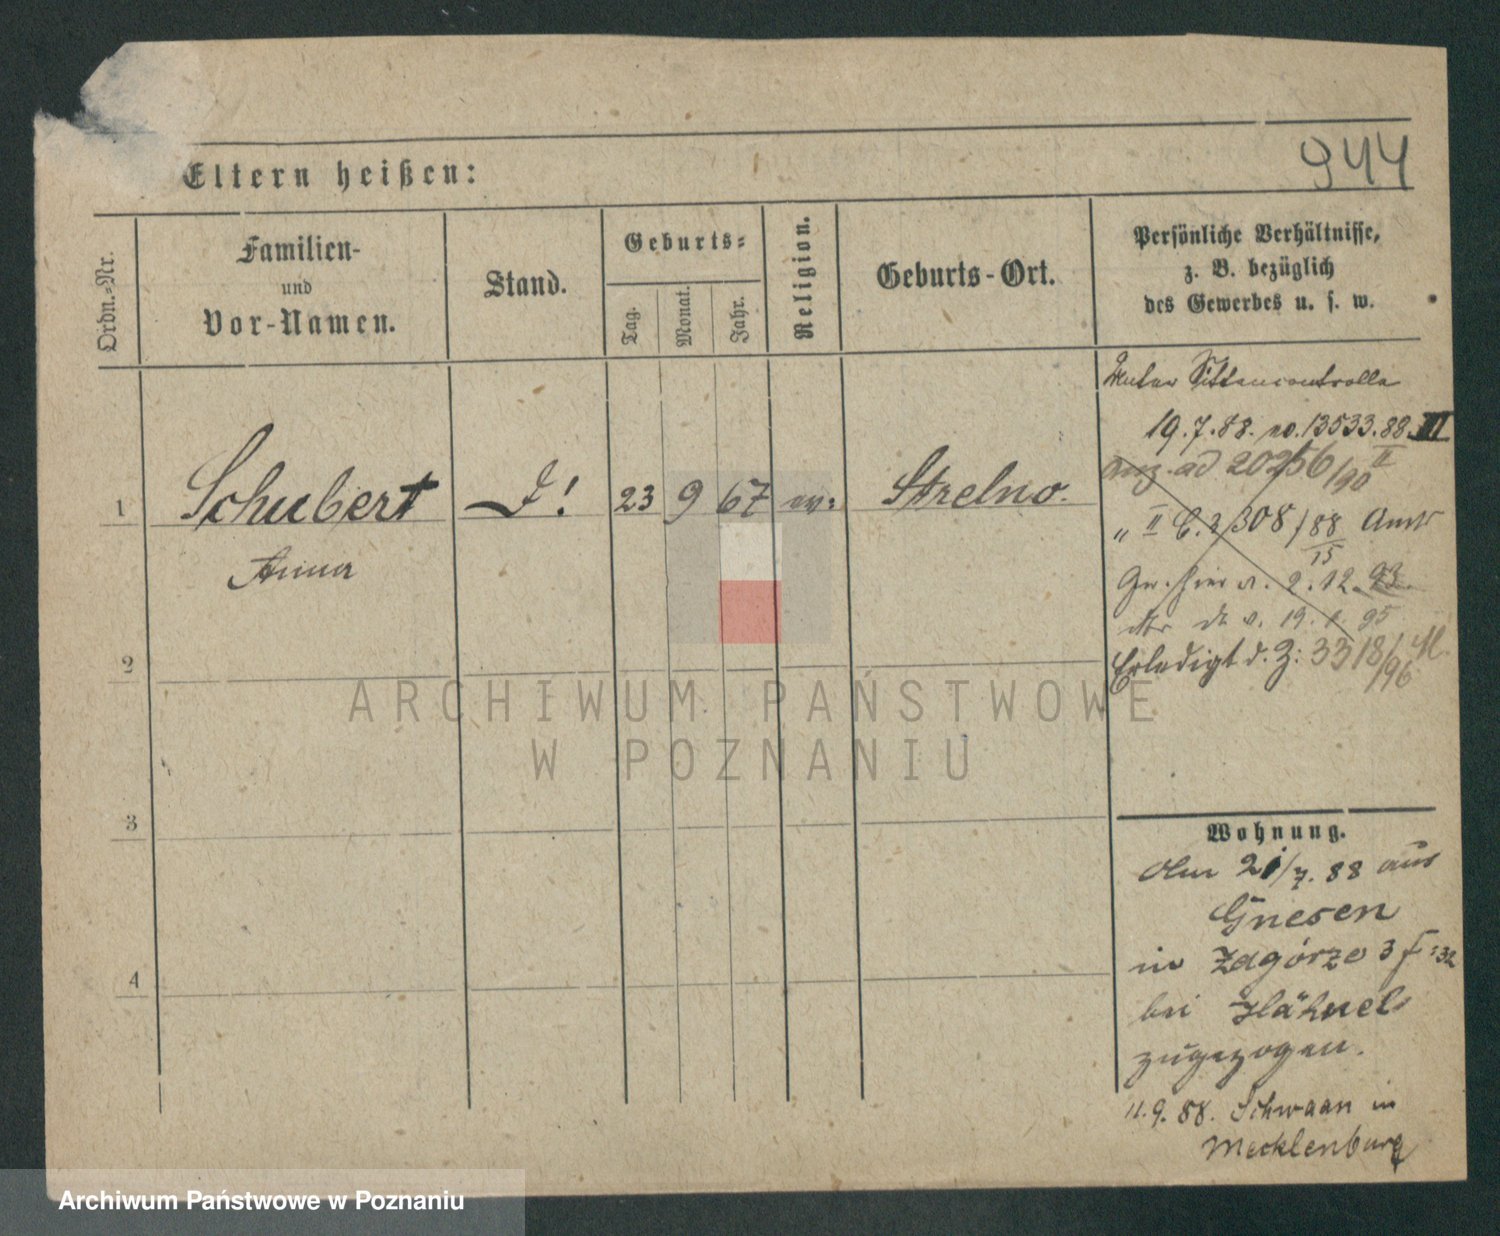 944
Eltern heißen:
Ordn.-Nr.
Familien-
und
Vor-Namen.
Stand.
Geburts-
Tag.
Monat.
Jahr.
Religion.
Geburts-Ort.
Persönliche Verhältnisse,
z. B. bezüglich
des Gewerbes u. s. w.
Unter Sittencontrolle
19.7.88. no. 13533.88.III
1
Schubert
23
9
67
ev:
Strelno.
ad 20256/90 II
" II C. 2308/88 Amts
15
2.12.93
v. 19.1.95
Anna
Erledigt d. Z: 3318/96
2
ARCHIWUM PAŃSTWOWE
W POZNANIU
3
4
Wohnung.
Am 21/7.88 aus
Gnesen
in Zagórze 3
bei Hähnel
zugezogen.
11.9.88. Schwaan in
Mecklenburg
Archiwum Państwowe w Poznaniu